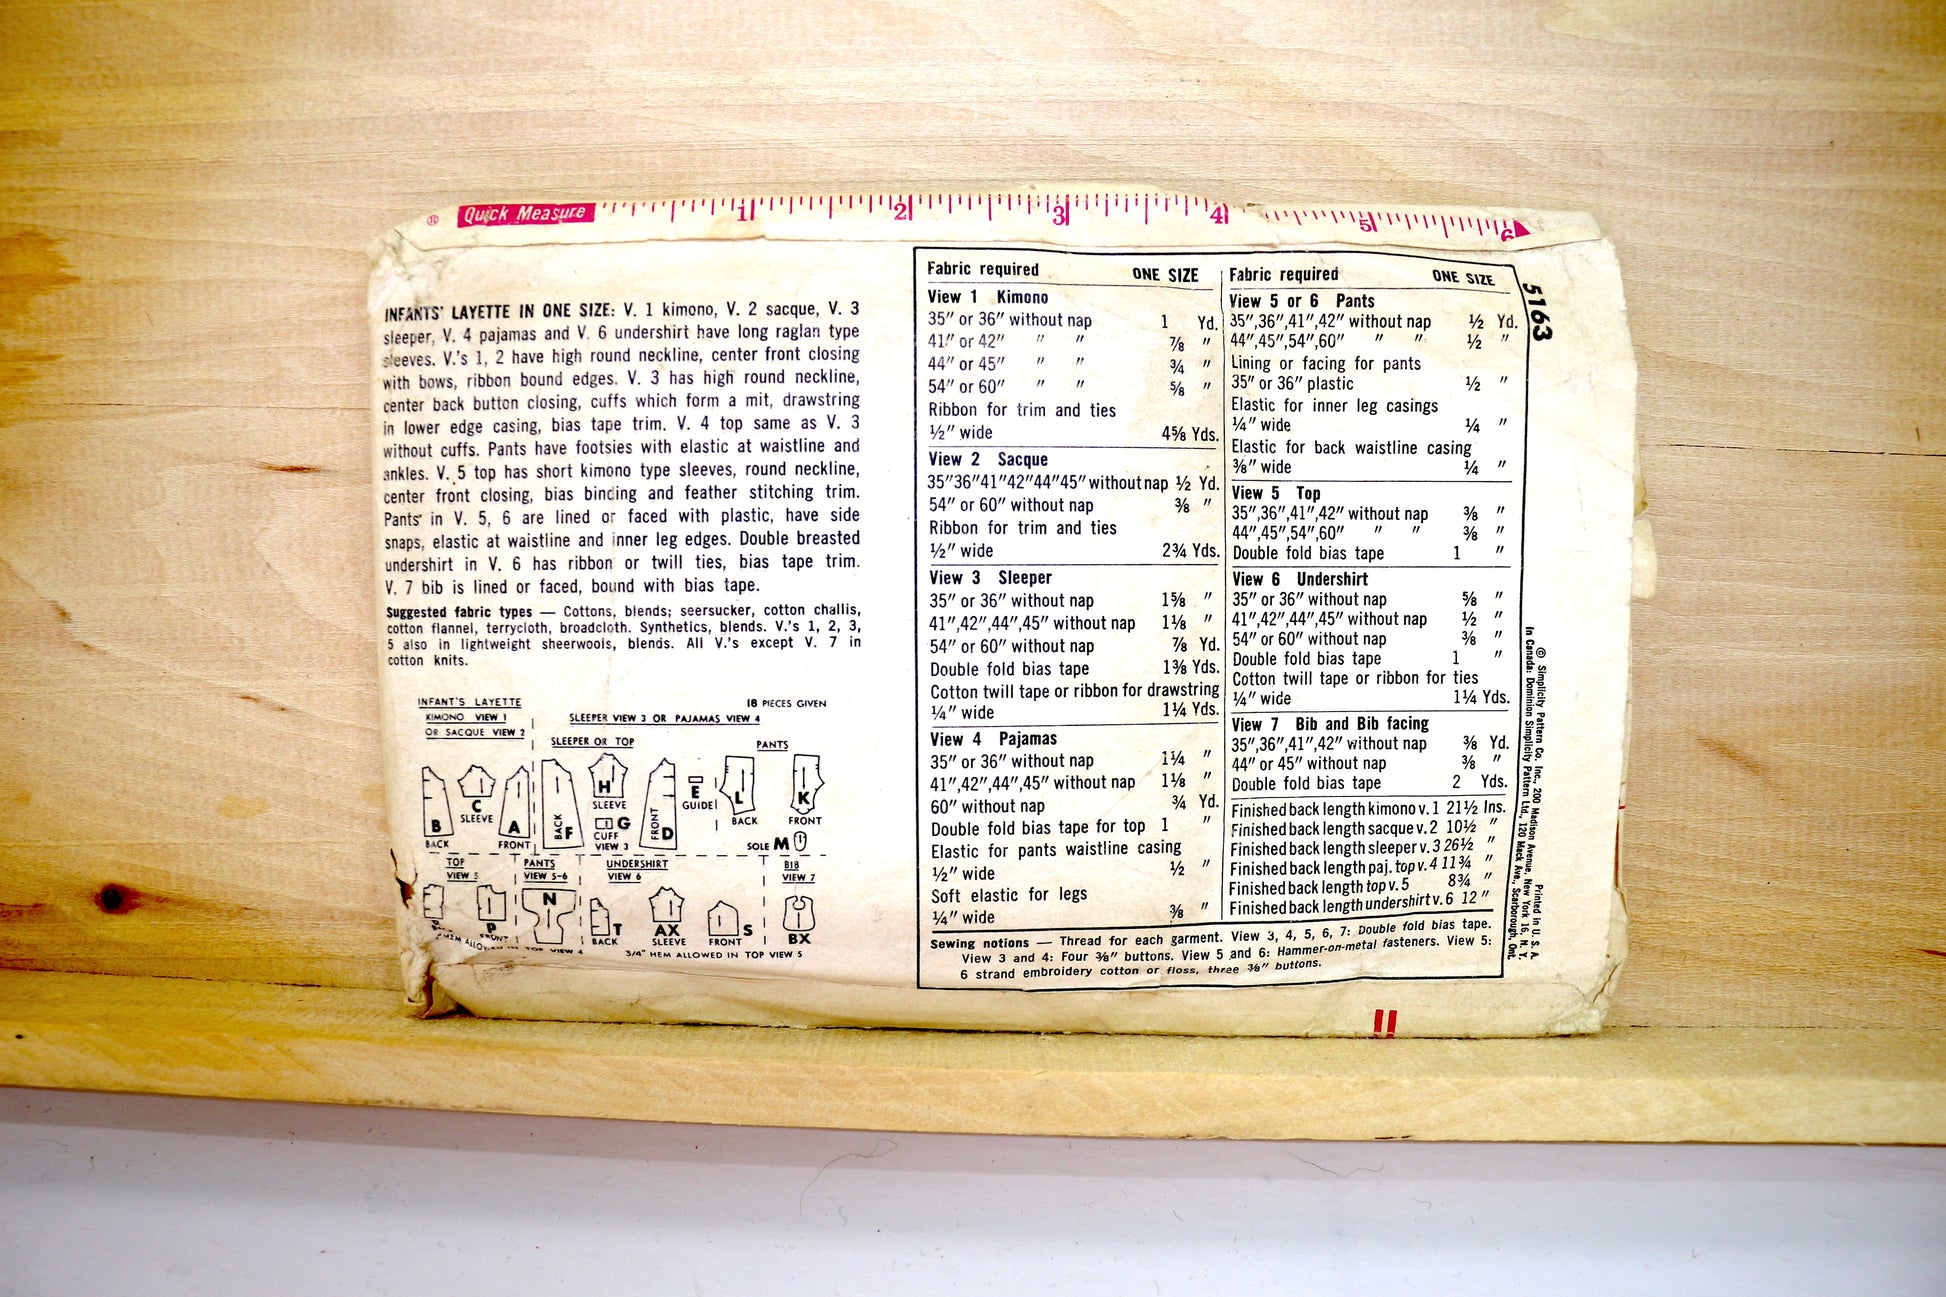 ® Quick Measure 1 2 3 4 5 6
INFANTS' LAYETTE IN ONE SIZE: V. 1 kimono, V. 2 sacque, V. 3
sleeper, V. 4 pajamas and V. 6 undershirt have long raglan type
sleeves. V.'s 1, 2 have high round neckline, center front closing
with bows, ribbon bound edges. V. 3 has high round neckline,
center back button closing, cuffs which form a mit, drawstring
in lower edge casing, bias tape trim. V. 4 top same as V. 3
without cuffs. Pants have footsies with elastic at waistline and
ankles. V. 5 top has short kimono type sleeves, round neckline,
center front closing, bias binding and feather stitching trim.
Pants in V. 5, 6 are lined or faced with plastic, have side
snaps, elastic at waistline and inner leg edges. Double breasted
undershirt in V. 6 has ribbon or twill ties, bias tape trim.
V. 7 bib is lined or faced, bound with bias tape.
Suggested fabric types — Cottons, blends; seersucker, cotton challis,
cotton flannel, terrycloth, broadcloth. Synthetics, blends. V.'s 1, 2, 3,
5 also in lightweight sheerwools, blends. All V.'s except V. 7 in
cotton knits.
INFANT'S LAYETTE 18 PIECES GIVEN
KIMONO VIEW 1
OR SACQUE VIEW 2
SLEEPER VIEW 3 OR PAJAMAS VIEW 4
SLEEPER OR TOP PANTS
B BACK
C SLEEVE
A FRONT
BACK F
H SLEEVE
G CUFF VIEW 3
FRONT D
E GUIDE
L BACK
K FRONT
SOLE M
TOP VIEW 5
PANTS VIEW 5-6
UNDERSHIRT VIEW 6
BIB VIEW 7
P FRONT
N
T BACK
AX SLEEVE
S FRONT
BX
HEM ALLOWED IN TOP VIEW 4
3/4" HEM ALLOWED IN TOP VIEW 5
Fabric required ONE SIZE
View 1 Kimono
35" or 36" without nap 1 Yd.
41" or 42" " " ⅞ "
44" or 45" " " ¾ "
54" or 60" " " ⅝ "
Ribbon for trim and ties
½" wide 4⅝ Yds.
View 2 Sacque
35"36"41"42"44"45" without nap ½ Yd.
54" or 60" without nap ⅜ "
Ribbon for trim and ties
½" wide 2¾ Yds.
View 3 Sleeper
35" or 36" without nap 1⅝ "
41",42",44",45" without nap 1⅛ "
54" or 60" without nap ⅞ Yd.
Double fold bias tape 1⅜ Yds.
Cotton twill tape or ribbon for drawstring
¼" wide 1¼ Yds.
View 4 Pajamas
35" or 36" without nap 1¼ "
41",42",44",45" without nap 1⅛ "
60" without nap ¾ Yd.
Double fold bias tape for top 1 "
Elastic for pants waistline casing
½" wide ½ "
Soft elastic for legs
¼" wide ⅜ "
Fabric required ONE SIZE
View 5 or 6 Pants
35",36",41",42" without nap ½ Yd.
44",45",54",60" " " ½ "
Lining or facing for pants
35" or 36" plastic ½ "
Elastic for inner leg casings
¼" wide ¼ "
Elastic for back waistline casing
⅜" wide ¼ "
View 5 Top
35",36",41",42" without nap ⅜ "
44",45",54",60" " " ⅜ "
Double fold bias tape 1 "
View 6 Undershirt
35" or 36" without nap ⅝ "
41",42",44",45" without nap ½ "
54" or 60" without nap ⅜ "
Double fold bias tape 1 "
Cotton twill tape or ribbon for ties
¼" wide 1¼ Yds.
View 7 Bib and Bib facing
35",36",41",42" without nap ⅜ Yd.
44" or 45" without nap ⅜ "
Double fold bias tape 2 Yds.
Finished back length kimono v. 1 21½ Ins.
Finished back length sacque v. 2 10½ "
Finished back length sleeper v. 3 26½ "
Finished back length paj. top v. 4 11¾ "
Finished back length top v. 5 8¾ "
Finished back length undershirt v. 6 12 "
Sewing notions — Thread for each garment. View 3, 4, 5, 6, 7: Double fold bias tape.
View 3 and 4: Four ⅜" buttons. View 5 and 6: Hammer-on-metal fasteners. View 5:
6 strand embroidery cotton or floss, three ⅜" buttons.
5163
© Simplicity Pattern Co. Inc., 200 Madison Avenue, New York 16, N. Y. Printed in U. S. A.
In Canada: Dominion Simplicity Pattern Ltd., 120 Mack Ave., Scarborough, Ont.